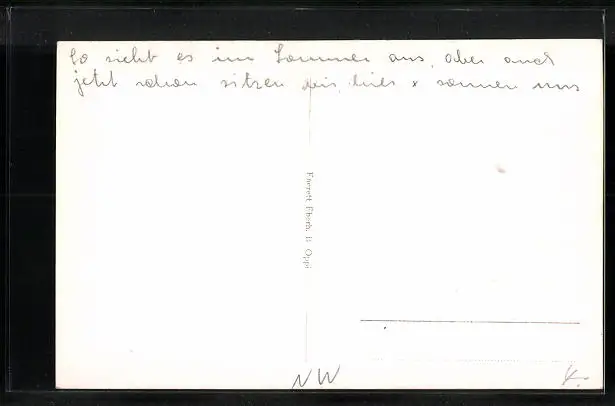 So sieht es im Sommer aus, aber auch
jetzt schon sitzen wir hier & sonnen uns
Everett Eberh. B. Oppi
NW
4.-